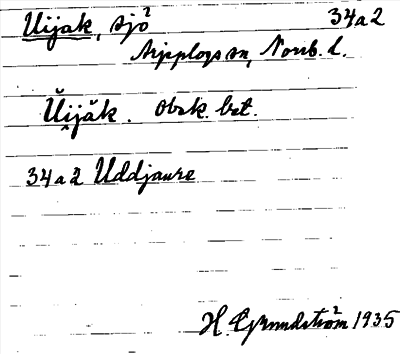 Uijak, sjö² 34a2
Arjeplogs sn, Norrb. l.
Ŭi̯jăk. Obek. bet.
34a2 Uddjaure
H. Grundström 1935